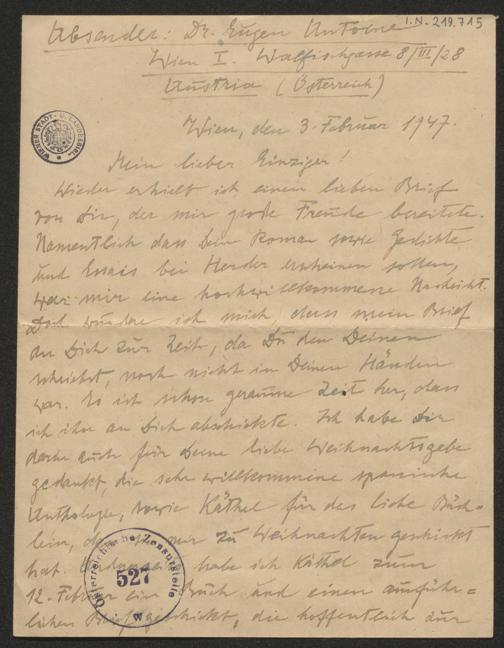 I.N. 219.715
Absender: Dr. Eugen Antoine
Wien I. Walfischgasse 8/VI/28
Austria (Österreich)
Wien, den 3. Februar 1947.
WIENER STADT- U. LANDESBIBL.
Mein lieber Einziger!
Wieder erhielt ich einen lieben Brief
von Dir, der mir große Freude bereitete.
Namentlich dass Dein Roman sowie Gedichte
und Essais bei Herder erscheinen sollen,
war mir eine hochwillkommene Nachricht.
Doch wundre ich mich, dass mein Brief
an Dich zur Zeit, da Du den Deinen
schriebst, noch nicht in Deinen Händen
war. Es ist schon geraume Zeit her, dass
ich ihn an Dich abschickte. Ich habe Dir
darin auch für Deine liebe Weihnachtsgabe
gedankt, die sehr willkommene spanische
Anthologie, sowie Käthel für das liebe Büch-
lein, das sie mir zu Weihnachten geschickt
hat. habe ich Käthel zum
12. Februar ein Buch und einen ausführ-
lichen Brief geschickt, die hoffentlich zur
Österreichische Zensurstelle
527
W